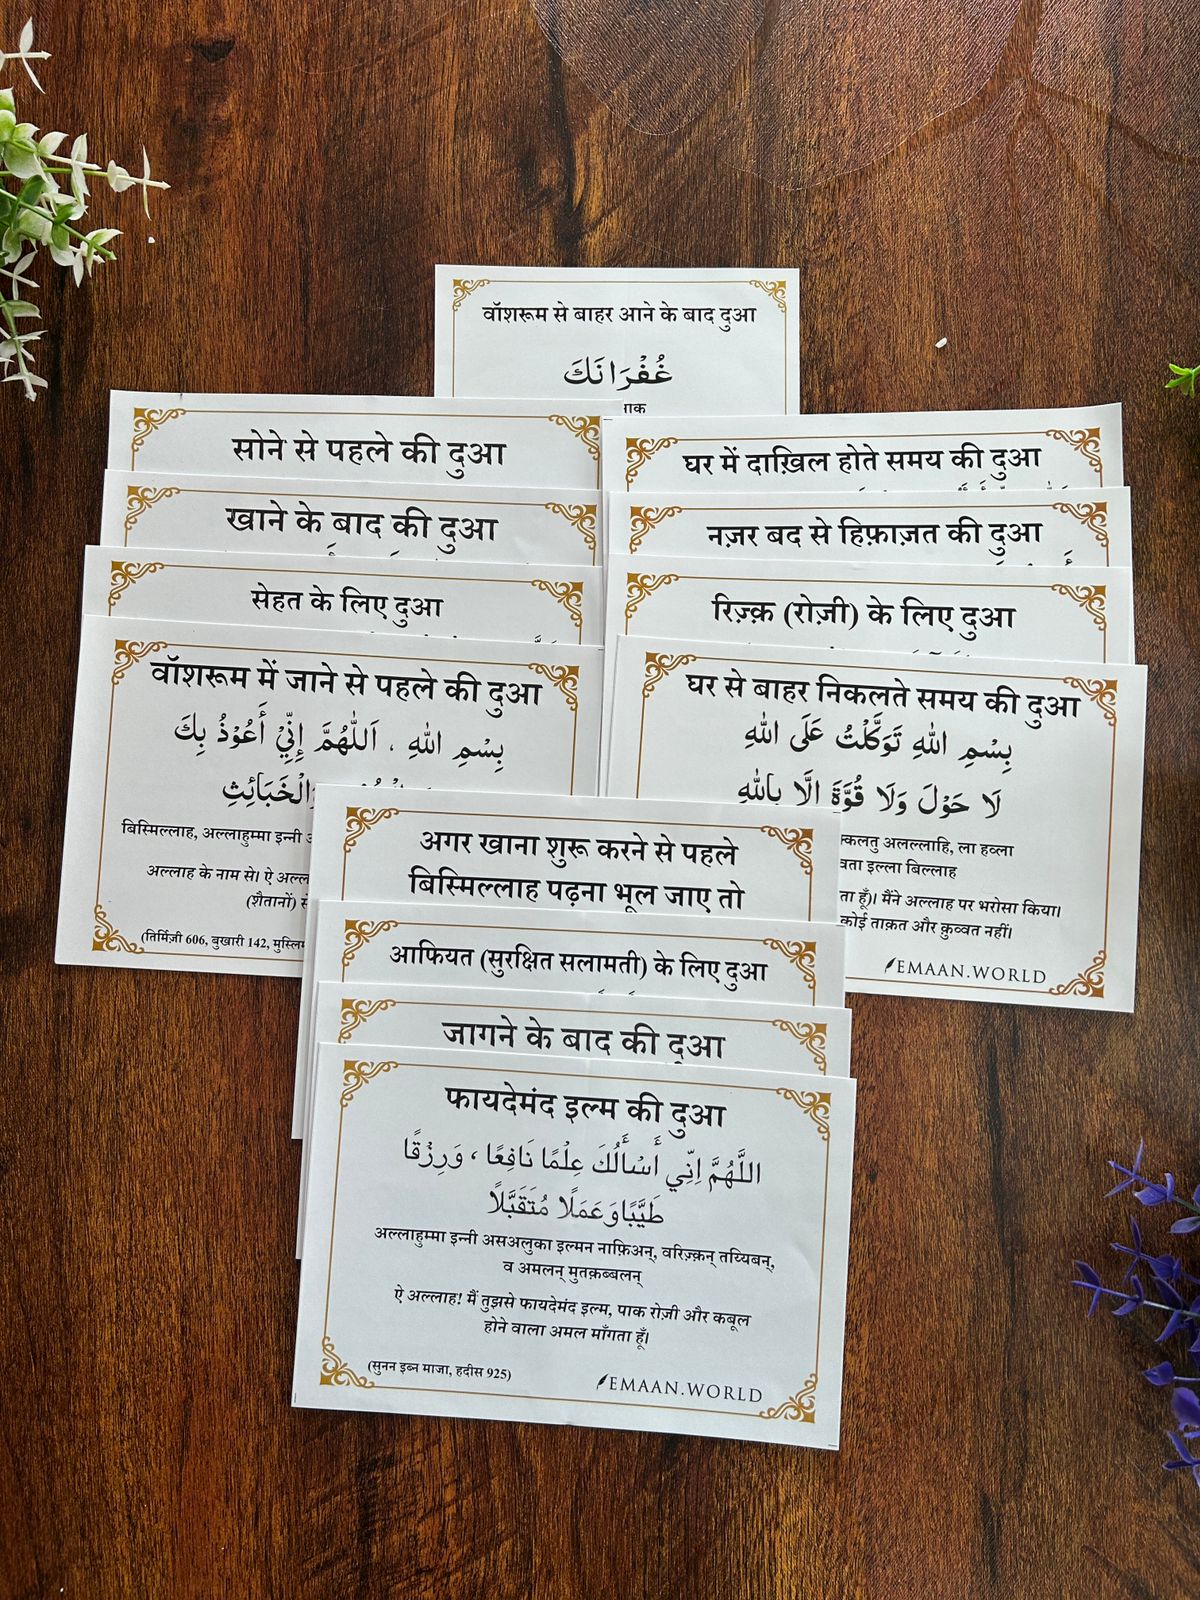 वॉशरूम से बाहर आने के बाद दुआ
غُفْرَانَكَ
सोने से पहले की दुआ
खाने के बाद की दुआ
सेहत के लिए दुआ
वॉशरूम में जाने से पहले की दुआ
بِسْمِ اللهِ ، اَللّٰهُمَّ إِنِّيْ أَعُوْذُ بِكَ
وَالْخَبَائِثِ
बिस्मिल्लाह, अल्लाहुम्मा इन्नी
अल्लाह के नाम से। ऐ
(शैतानों)
(तिर्मिज़ी 606, बुखारी 142,
घर में दाख़िल होते समय की दुआ
नज़र बद से हिफ़ाज़त की दुआ
रिज़्क़ (रोज़ी) के लिए दुआ
घर से बाहर निकलते समय की दुआ
بِسْمِ اللهِ تَوَكَّلْتُ عَلَى اللهِ
لَا حَوْلَ وَلَا قُوَّةَ اِلَّا بِاللهِ
अलल्लाहि, ला हव्ला
इल्ला बिल्लाह
हूँ)। मैंने अल्लाह पर भरोसा किया।
कोई ताक़त और क़ुव्वत नहीं।
EMAAN.WORLD
अगर खाना शुरू करने से पहले
बिस्मिल्लाह पढ़ना भूल जाए तो
आफियत (सुरक्षित सलामती) के लिए दुआ
जागने के बाद की दुआ
फायदेमंद इल्म की दुआ
اللَّهُمَّ اِنِّي أَسْأَلُكَ عِلْمًا نَافِعًا ، وَرِزْقًا
طَيِّبًا وَعَمَلًا مُتَقَبَّلًا
अल्लाहुम्मा इन्नी असअलुका इल्मन नाफ़िअन्, वरिज़्क़न् तय्यिबन्,
व अमलन् मुतक़ब्बलन्
ऐ अल्लाह! मैं तुझसे फायदेमंद इल्म, पाक रोज़ी और कबूल
होने वाला अमल माँगता हूँ।
(सुनन इब्न माजा, हदीस 925)
EMAAN.WORLD